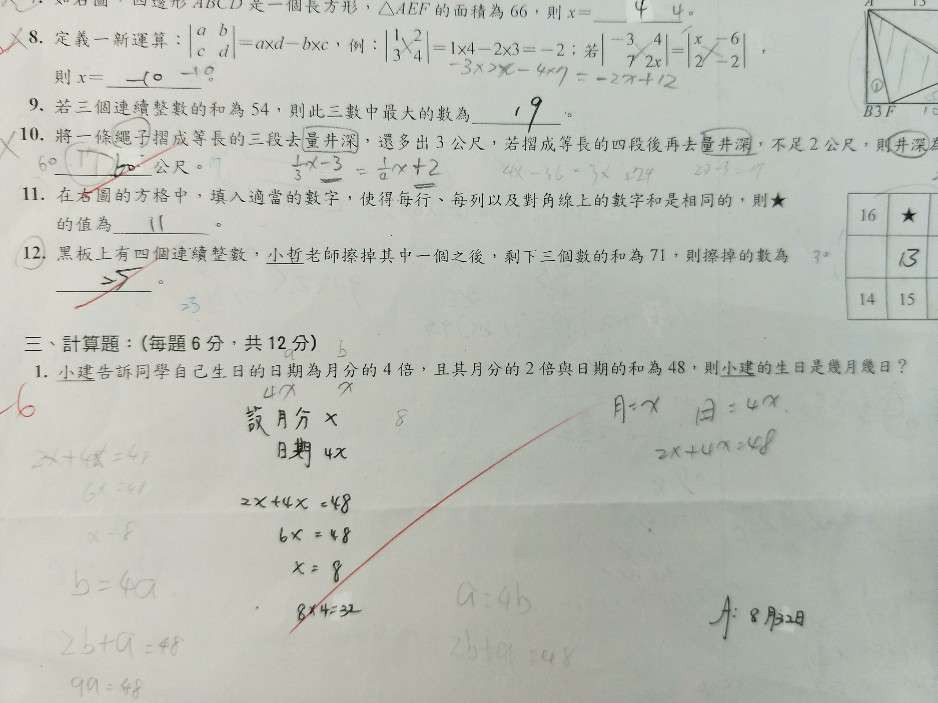 四邊形 ABCD 是一個長方形，△AEF 的面積為 66，則 x= 4 4。
8. 定義一新運算：|a b c d|=a×d－b×c，例：|1 2 3 4|=1×4－2×3=－2；若|－3 4 7 2x|=|x －6 2 －2|，
-3×2x-4×7 = -2x+12
則 x= -10 -10。
9. 若三個連續整數的和為 54，則此三數中最大的數為 19。
10. 將一條繩子摺成等長的三段去量井深，還多出 3 公尺，若摺成等長的四段後再去量井深，不足 2 公尺，則井深為
60 17 60 公尺。 1/3x-3 = 1/4x+2
11. 在右圖的方格中，填入適當的數字，使得每行、每列以及對角線上的數字和是相同的，則★
的值為 11。
12. 黑板上有四個連續整數，小哲老師擦掉其中一個之後，剩下三個數的和為 71，則擦掉的數為
25。
23
A 13
①
B3F
16 ★
13
14 15
三、計算題：(每題 6 分，共 12 分)
a b
1. 小建告訴同學自己生日的日期為月份的 4 倍，且其月份的 2 倍與日期的和為 48，則小建的生日是幾月幾日？
-6
4x x
設月分 x 8
日期 4x
月=x 日=4x
2x+4x=48
2x+4x=48
6x=48
x=8
8×4=32
2x+4x=48
6x=48
x=8
b=4a
2b+a=48
9a=48
a=4b
2b+a=48
A: 8月32日